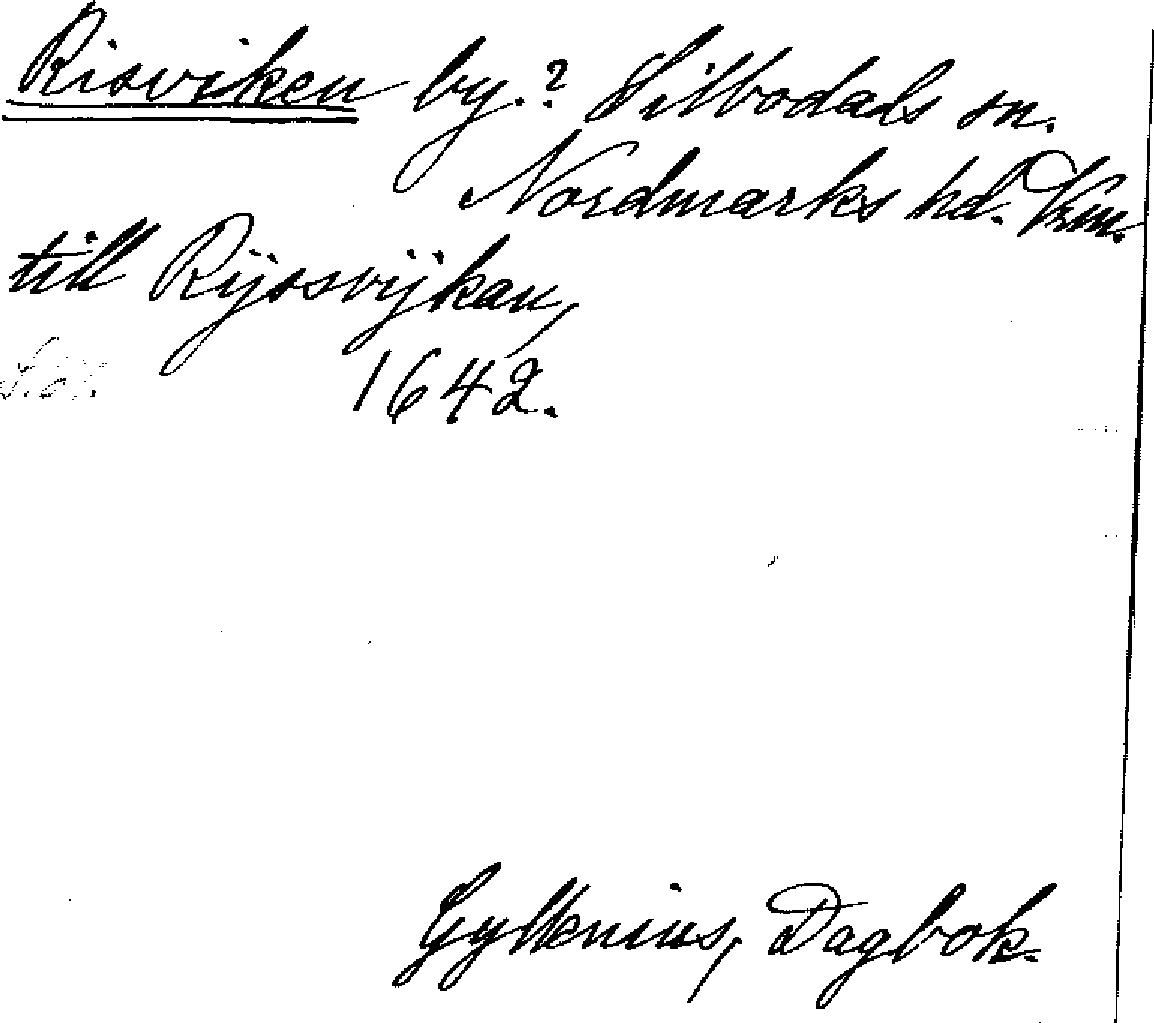 Risviken by.? Silbodals sn.
Nordmarks hd. Vrm.
till Rijssvijkan,
1642.
Gyllenius, Dagbok.